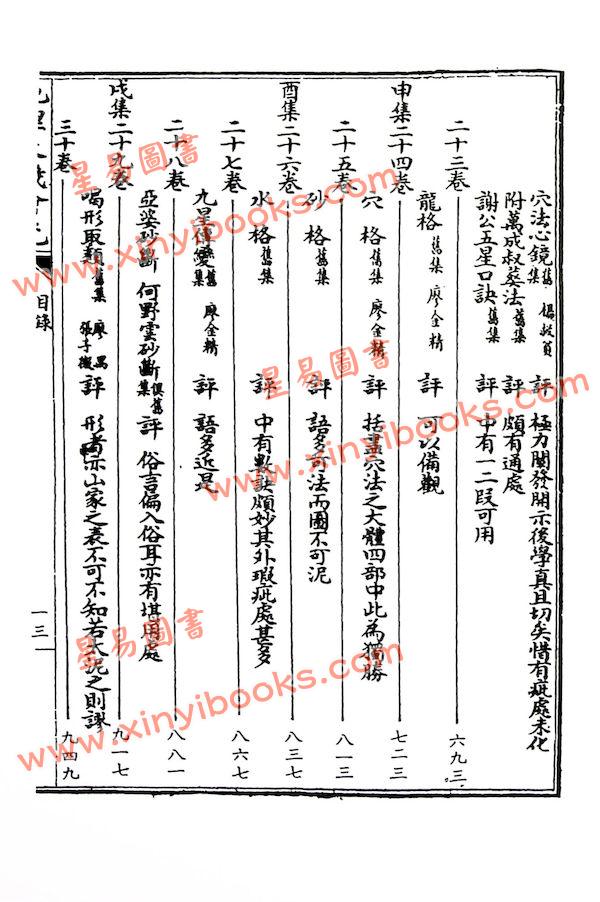 穴法心鏡 舊集 評 極力闡發開示後學真且切矣惜有疵處未化
附萬成叔葬法 舊集 評 頗有通處
謝公五星口訣 舊集 評 中有一二段可用
二十三卷 六九三
龍格 舊集 廖金精 評 可以備觀
申集二十四卷 七二三
穴格 舊集 廖金精 評 括盡穴法之大體四部中此為獨勝
二十五卷 八一三
砂格 舊集 評 語多可法而圖不可泥
酉集二十六卷 八三七
水格 舊集 評 中有數訣頗妙其外瑕疵處甚多
二十七卷 八六七
九星傳變 舊集 廖金精 評 語多近是
二十八卷 八八一
亞婆砂斷 何野雲砂斷 俱舊集 評 俗言偏入俗耳亦有堪用處
戌集二十九卷 九一七
喝形取類 舊集 廖禹 張子微 評 形者亦山家之表不可不知若太泥之則謬
三十卷 九四九
目錄
一三
星易圖書
www.xinyibooks.com
星易圖書
www.xinyibooks.com
星易圖書
www.xinyibooks.com